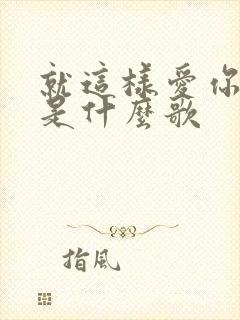 就這樣愛你
是什麼歌
指風